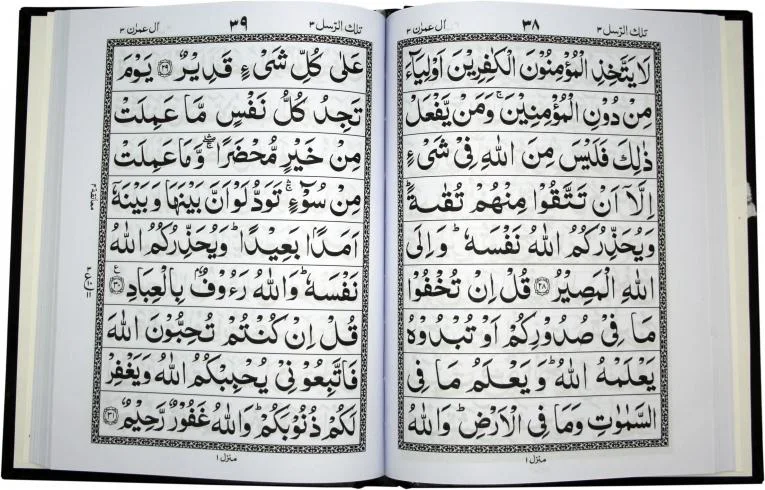 تلك الرسل ٣
٣٨
اٰل عمرٰن ٣
لَا يَتَّخِذِ الْمُؤْمِنُوْنَ الْكٰفِرِيْنَ اَوْلِيَآءَ
مِنْ دُوْنِ الْمُؤْمِنِيْنَ ۚ وَمَنْ يَّفْعَلْ
ذٰلِكَ فَلَيْسَ مِنَ اللّٰهِ فِيْ شَيْءٍ
اِلَّاۤ اَنْ تَتَّقُوْا مِنْهُمْ تُقٰىةً ؕ
وَيُحَذِّرُكُمُ اللّٰهُ نَفْسَهٗ ؕ وَاِلَى
اللّٰهِ الْمَصِيْرُ ﴿٢٨﴾ قُلْ اِنْ تُخْفُوْا
مَا فِيْ صُدُوْرِكُمْ اَوْ تُبْدُوْهُ
يَعْلَمْهُ اللّٰهُ ؕ وَيَعْلَمُ مَا فِي
السَّمٰوٰتِ وَمَا فِي الْاَرْضِ ؕ وَاللّٰهُ
منزل ١
تلك الرسل ٣
٣٩
اٰل عمرٰن ٣
عَلٰى كُلِّ شَيْءٍ قَدِيْرٌ ﴿٢٩﴾ يَوْمَ
تَجِدُ كُلُّ نَفْسٍ مَّا عَمِلَتْ
مِنْ خَيْرٍ مُّحْضَرًا ۛۖ وَّمَا عَمِلَتْ
مِنْ سُوْٓءٍ ۛۚ تَوَدُّ لَوْ اَنَّ بَيْنَهَا وَبَيْنَهٗۤ
اَمَدًاۢ بَعِيْدًا ؕ وَيُحَذِّرُكُمُ اللّٰهُ
نَفْسَهٗ ؕ وَاللّٰهُ رَءُوْفٌۢ بِالْعِبَادِ ﴿٣٠﴾
قُلْ اِنْ كُنْتُمْ تُحِبُّوْنَ اللّٰهَ
فَاتَّبِعُوْنِيْ يُحْبِبْكُمُ اللّٰهُ وَيَغْفِرْ
لَكُمْ ذُنُوْبَكُمْ ؕ وَاللّٰهُ غَفُوْرٌ رَّحِيْمٌ ﴿٣١﴾
منزل ١